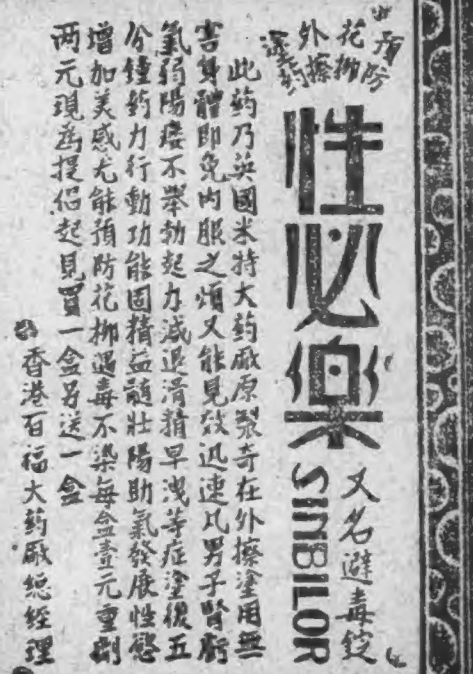 預防
花柳
外擦
塗药
性必樂
SIMBILOR
又名避毒錠
此药乃英國米特大药厰原製奇在外擦塗用無
害身體即免內服之煩又能見效迅速凡男子腎虧
氣弱陽痿不舉勃起力減退滑精早洩等症塗後五
分鐘药力行動功能固精益髓壯陽助氣發展性慾
增加美感尤能預防花柳遇毒不染每盒壹元重劑
两元現為提倡起見買一盒另送一盒
香港百福大药厰總經理